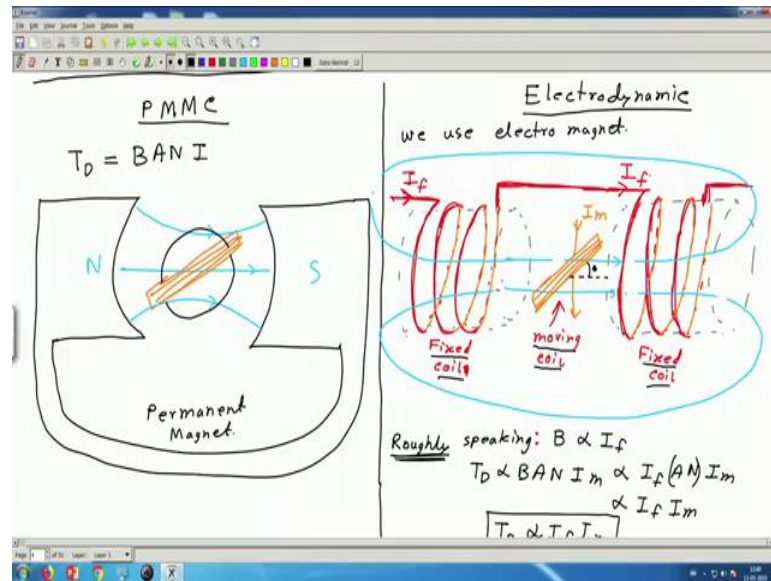 File Edit View Journal Tools Options Help
Sans Normal 12
PMMC
T_D = BANI
N
S
Permanent
Magnet.
Electrodynamic
we use electro magnet.
I_f
I_f
I_m
Fixed
coil
moving
coil
Fixed
coil
Roughly speaking: B ∝ I_f
T_D ∝ BAN I_m ∝ I_f (AN) I_m
∝ I_f I_m
T_D ∝ I_f I_m
Page of 51 Layer: Layer 1